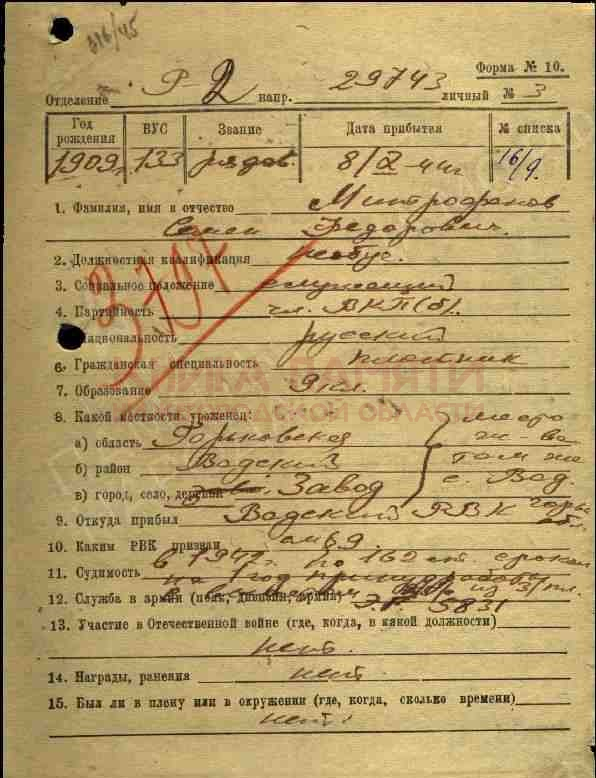 816/45
Форма № 10.
Отделение Р-2 напр. 29743 личный № 3
Год рождения ВУС Звание Дата прибытия № списка
1909г. 133 рядов. 8/X-44г 16/9.
1. Фамилия, имя и отчество Митрофанов
Семен Федорович.
2. Должностная квалификация необуч.
3. Социальное положение служащий
4. Партийность чл. ВКП(б).
5. Национальность русский
6. Гражданская специальность плотник
7. Образование 9 кл.
3797
КНИГА ПАМЯТИ
НИЖЕГОРОДСКОЙ ОБЛАСТИ
8. Какой местности уроженец: место
а) область Горьковская ж-ва
б) район Вадский там же
в) город, село, деревня Завод с. Вад.
9. Откуда прибыл Вадский РВК Горьк. обл.
10. Каким РВК призван
11. Судимость в 1942г. по 162 ст. сроком
на 1 год принуд работы
12. Служба в армии (полк, дивизия, армия) ЭГ 5831
13. Участие в Отечественной войне (где, когда, в какой должности)
нет.
14. Награды, ранения нет.
15. Был ли в плену или в окружении (где, когда, сколько времени)
нет.